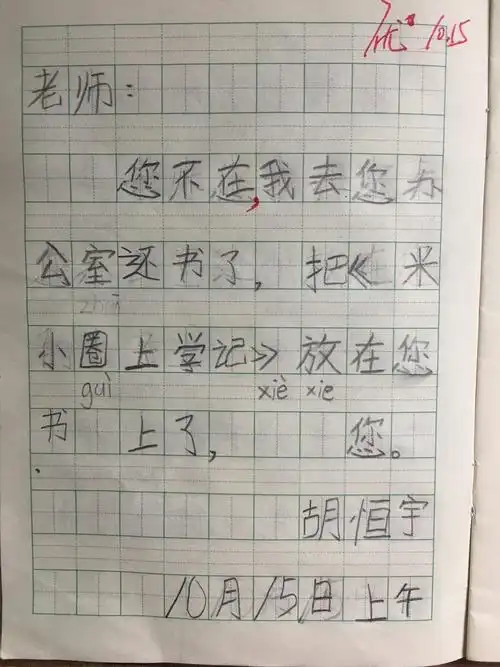 优 10.15
老师：
您不在,我去您办
公室还书了，把《米
zhǔ
小圈上学记》放在您
guì xiè xie
书上了， 您。
胡恒宇
10月15日上午